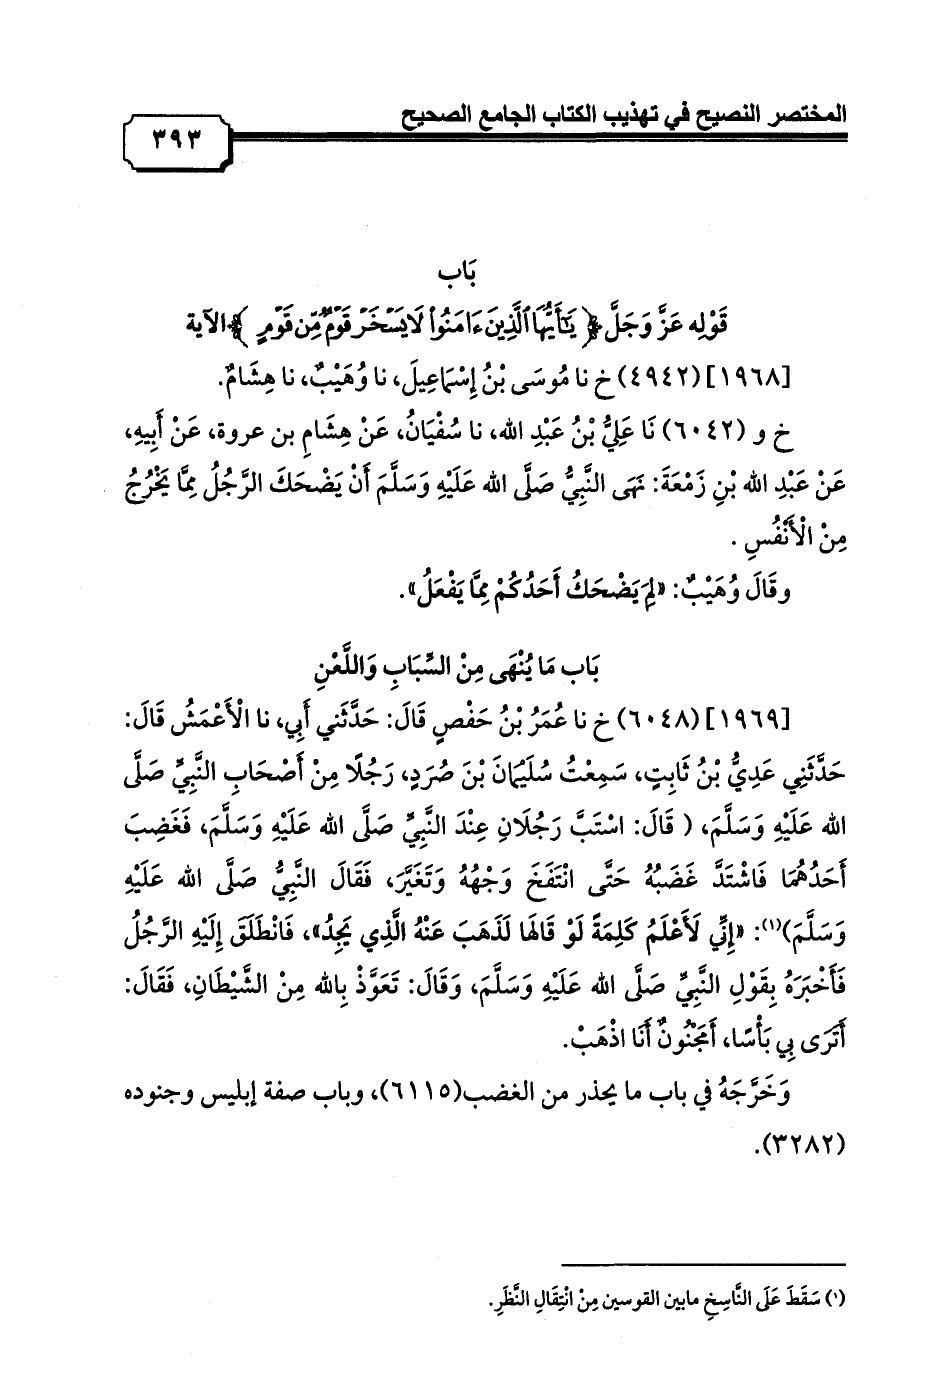 المختصر النصيح في تهذيب الكتاب الجامع الصحيح
٣٩٣
بَاب
قَوْلِه عَزَّ وَجَلَّ ﴿يَٰٓأَيُّهَا ٱلَّذِينَ ءَامَنُوا۟ لَا يَسْخَرْ قَوْمٌ مِّن قَوْمٍ﴾ الآية
[١٩٦٨] (٤٩٤٢) خ نا مُوسَى بْنُ إِسْمَاعِيلَ، نا وُهَيْبٌ، نا هِشَامٌ.
خ و (٦٠٤٢) نَا عَلِيُّ بْنُ عَبْدِ الله، نا سُفْيَانُ، عَنْ هِشَامِ بن عروة، عَنْ أَبِيهِ،
عَنْ عَبْدِ الله بْنِ زَمْعَةَ: نَهَى النَّبِيُّ صَلَّى الله عَلَيْهِ وَسَلَّمَ أَنْ يَضْحَكَ الرَّجُلُ مِمَّا يَخْرُجُ
مِنْ الْأَنْفُسِ .
وقَالَ وُهَيْبٌ: «لِمَ يَضْحَكُ أَحَدُكُمْ مِمَّا يَفْعَلُ».
بَاب مَا يُنْهَى مِنْ السِّبَابِ وَاللَّعْنِ
[١٩٦٩] (٦٠٤٨) خ نا عُمَرُ بْنُ حَفْصٍ قَالَ: حَدَّثَنِي أَبِي، نا الْأَعْمَشُ قَالَ:
حَدَّثَنِي عَدِيُّ بْنُ ثَابِتٍ، سَمِعْتُ سُلَيْمَانَ بْنَ صُرَدٍ، رَجُلًا مِنْ أَصْحَابِ النَّبِيِّ صَلَّى
الله عَلَيْهِ وَسَلَّمَ، ( قَالَ: اسْتَبَّ رَجُلَانِ عِنْدَ النَّبِيِّ صَلَّى الله عَلَيْهِ وَسَلَّمَ، فَغَضِبَ
أَحَدُهُمَا فَاشْتَدَّ غَضَبُهُ حَتَّى انْتَفَخَ وَجْهُهُ وَتَغَيَّرَ، فَقَالَ النَّبِيُّ صَلَّى الله عَلَيْهِ
وَسَلَّمَ)(١): «إِنِّي لَأَعْلَمُ كَلِمَةً لَوْ قَالهَا لَذَهَبَ عَنْهُ الَّذِي يَجِدُ»، فَانْطَلَقَ إِلَيْهِ الرَّجُلُ
فَأَخْبَرَهُ بِقَوْلِ النَّبِيِّ صَلَّى الله عَلَيْهِ وَسَلَّمَ، وَقَالَ: تَعَوَّذْ بِالله مِنْ الشَّيْطَانِ، فَقَالَ:
أَتَرَى بِي بَأْسًا، أَمَجْنُونٌ أَنَا اذْهَبْ.
وَخَرَّجَهُ في باب ما يحذر من الغضب(٦١١٥)، وباب صفة إبليس وجنوده
(٣٢٨٢).
(١) سَقَطَ عَلَى النَّاسِخِ مابين القوسين مِنْ انْتِقَالِ النَّظَرِ.